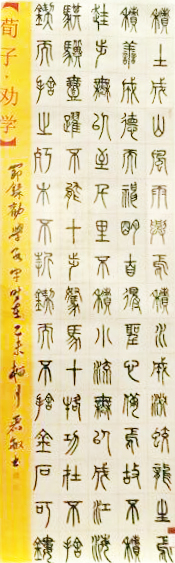 積土成山風雨興焉積水成淵蛟龍生焉
積善成德而神明自得聖心備焉故不積
跬步無以至千里不積小流無以成江海
騏驥壹躍不能十步駑馬十駕功在不捨
鍥而捨之朽木不折鍥而不捨金石可鏤
節錄勸學 时在乙未 月 书
【荀子·劝学】